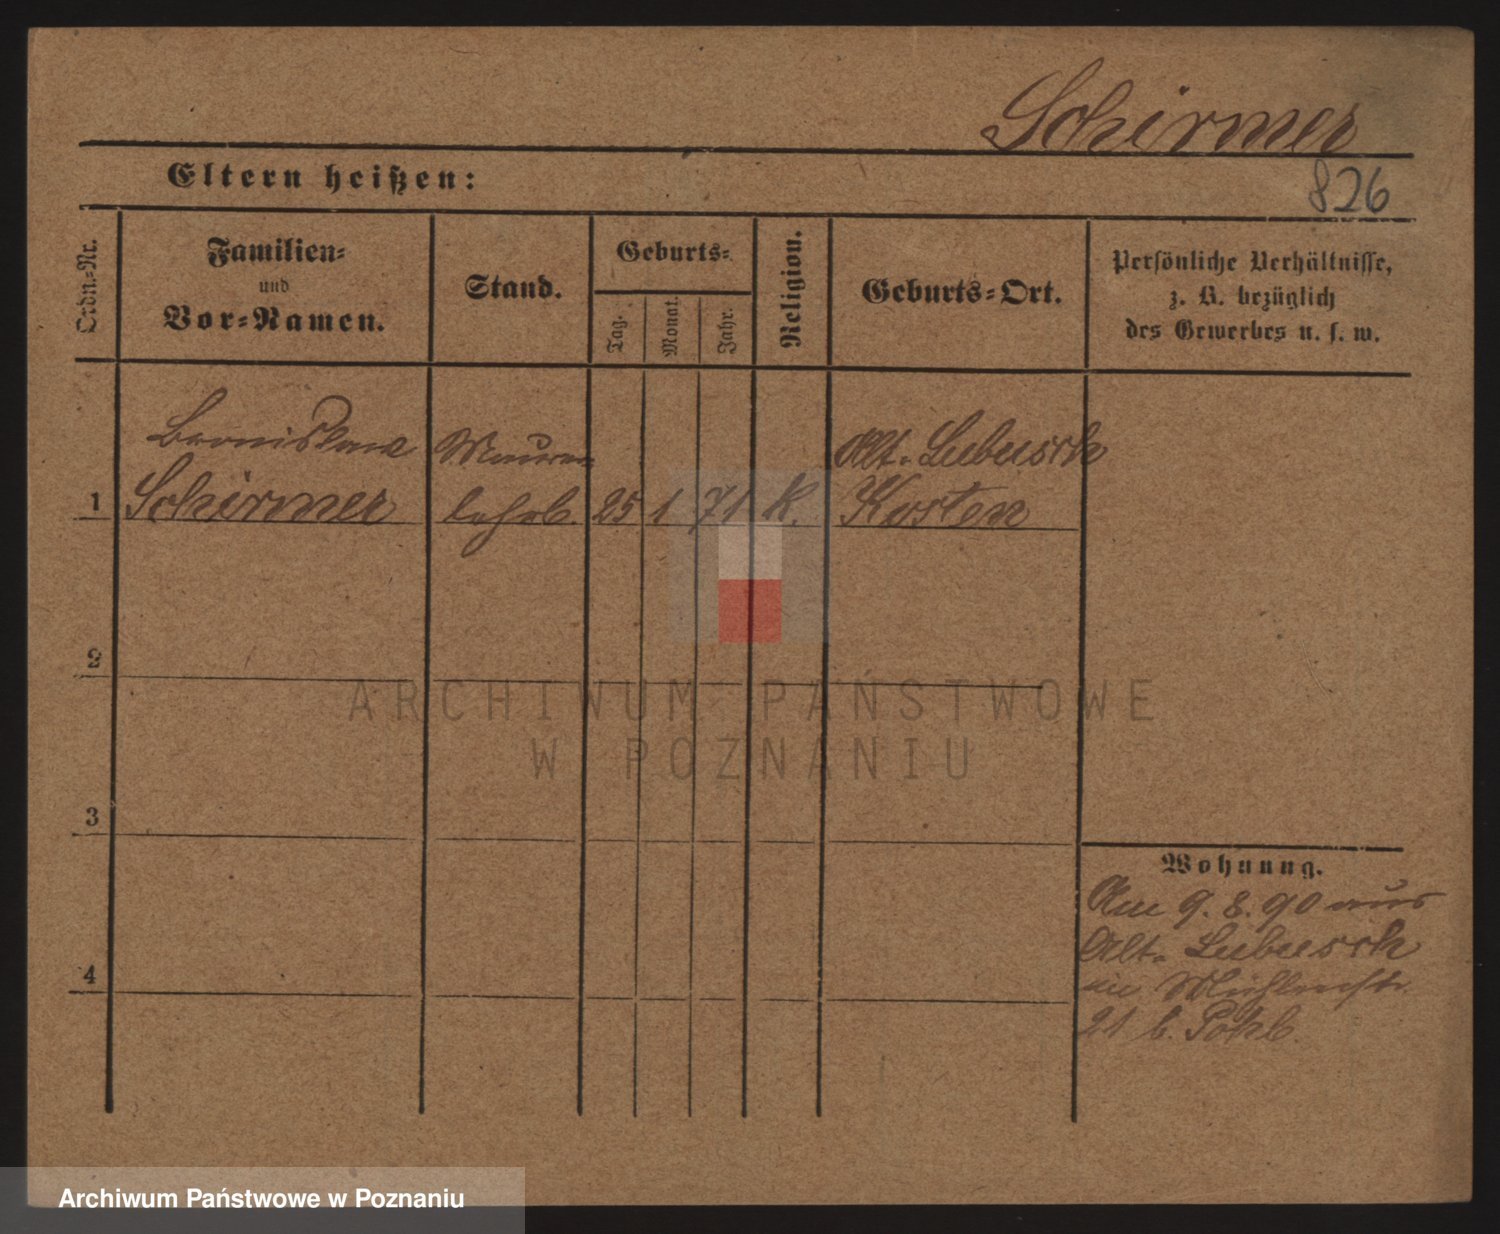 Schirmer
Eltern heißen:
826
Ordn.-Nr.
Familien-
und
Vor-Namen.
Stand.
Geburts-
Tag.
Monat.
Jahr.
Religion.
Geburts-Ort.
Persönliche Verhältnisse,
z. B. bezüglich
des Gewerbes u. s. w.
Bronislaus Maurer Alt-Lubusch
1 Schirmer lehrl. 25 1 71 K. Kosten
2
ARCHIWUM PAŃSTWOWE
W POZNANIU
3
Wohnung.
Am 9. 8. 90 aus
Alt-Lubusch
4
in Mühlenstr.
21 b.
Archiwum Państwowe w Poznaniu